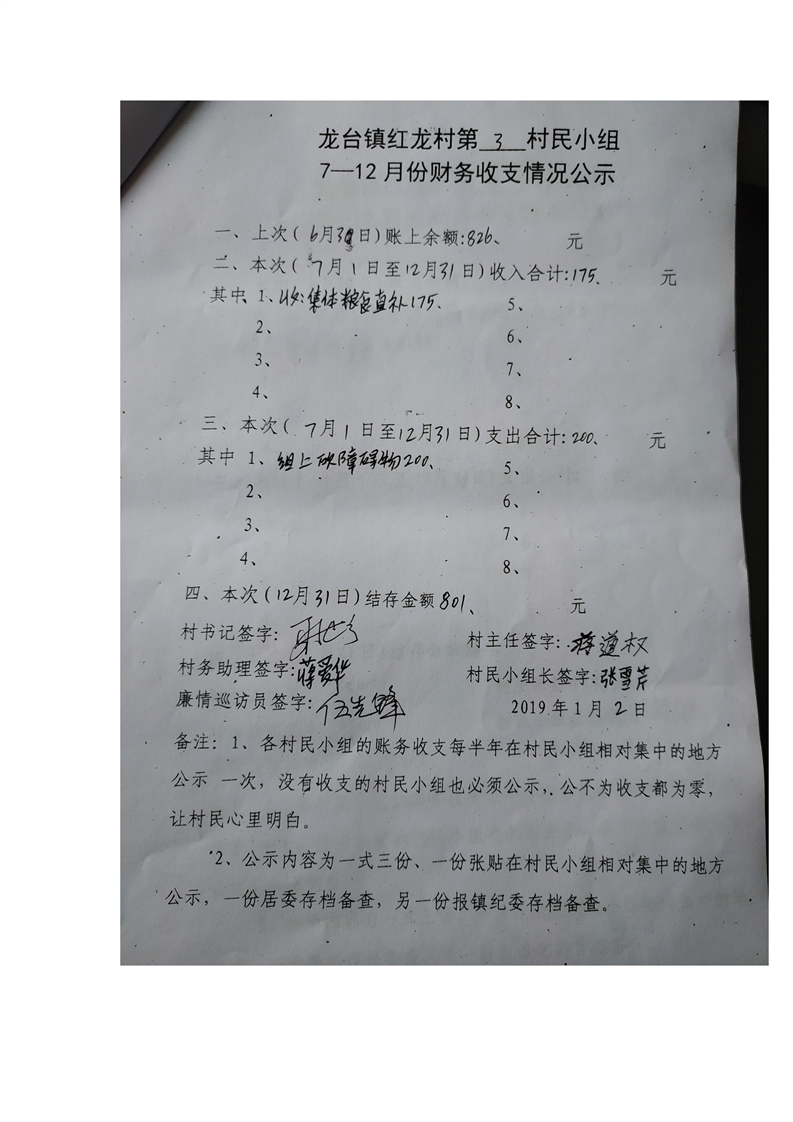 龙台镇红龙村第 3 村民小组
7—12月份财务收支情况公示
一、上次(6月30日)账上余额:826、 元
二、本次(7月1日至12月31日)收入合计:175 元
其中 1、收:集体粮食直补175、 5、
2、 6、
3、 7、
4、 8、
三、本次(7月1日至12月31日)支出合计:200、 元
其中 1、组上砍障碍物200、 5、
2、 6、
3、 7、
4、 8、
四、本次(12月31日)结存金额801、 元
村书记签字: 村主任签字:蒋道权
村务助理签字:蒋爱华 村民小组长签字:张雪芹
廉情巡访员签字:伍先锋 2019年1月2日
备注:1、各村民小组的账务收支每半年在村民小组相对集中的地方
公示 一次,没有收支的村民小组也必须公示,公不为收支都为零,
让村民心里明白。
2、公示内容为一式三份、一份张贴在村民小组相对集中的地方
公示,一份居委存档备查,另一份报镇纪委存档备查。